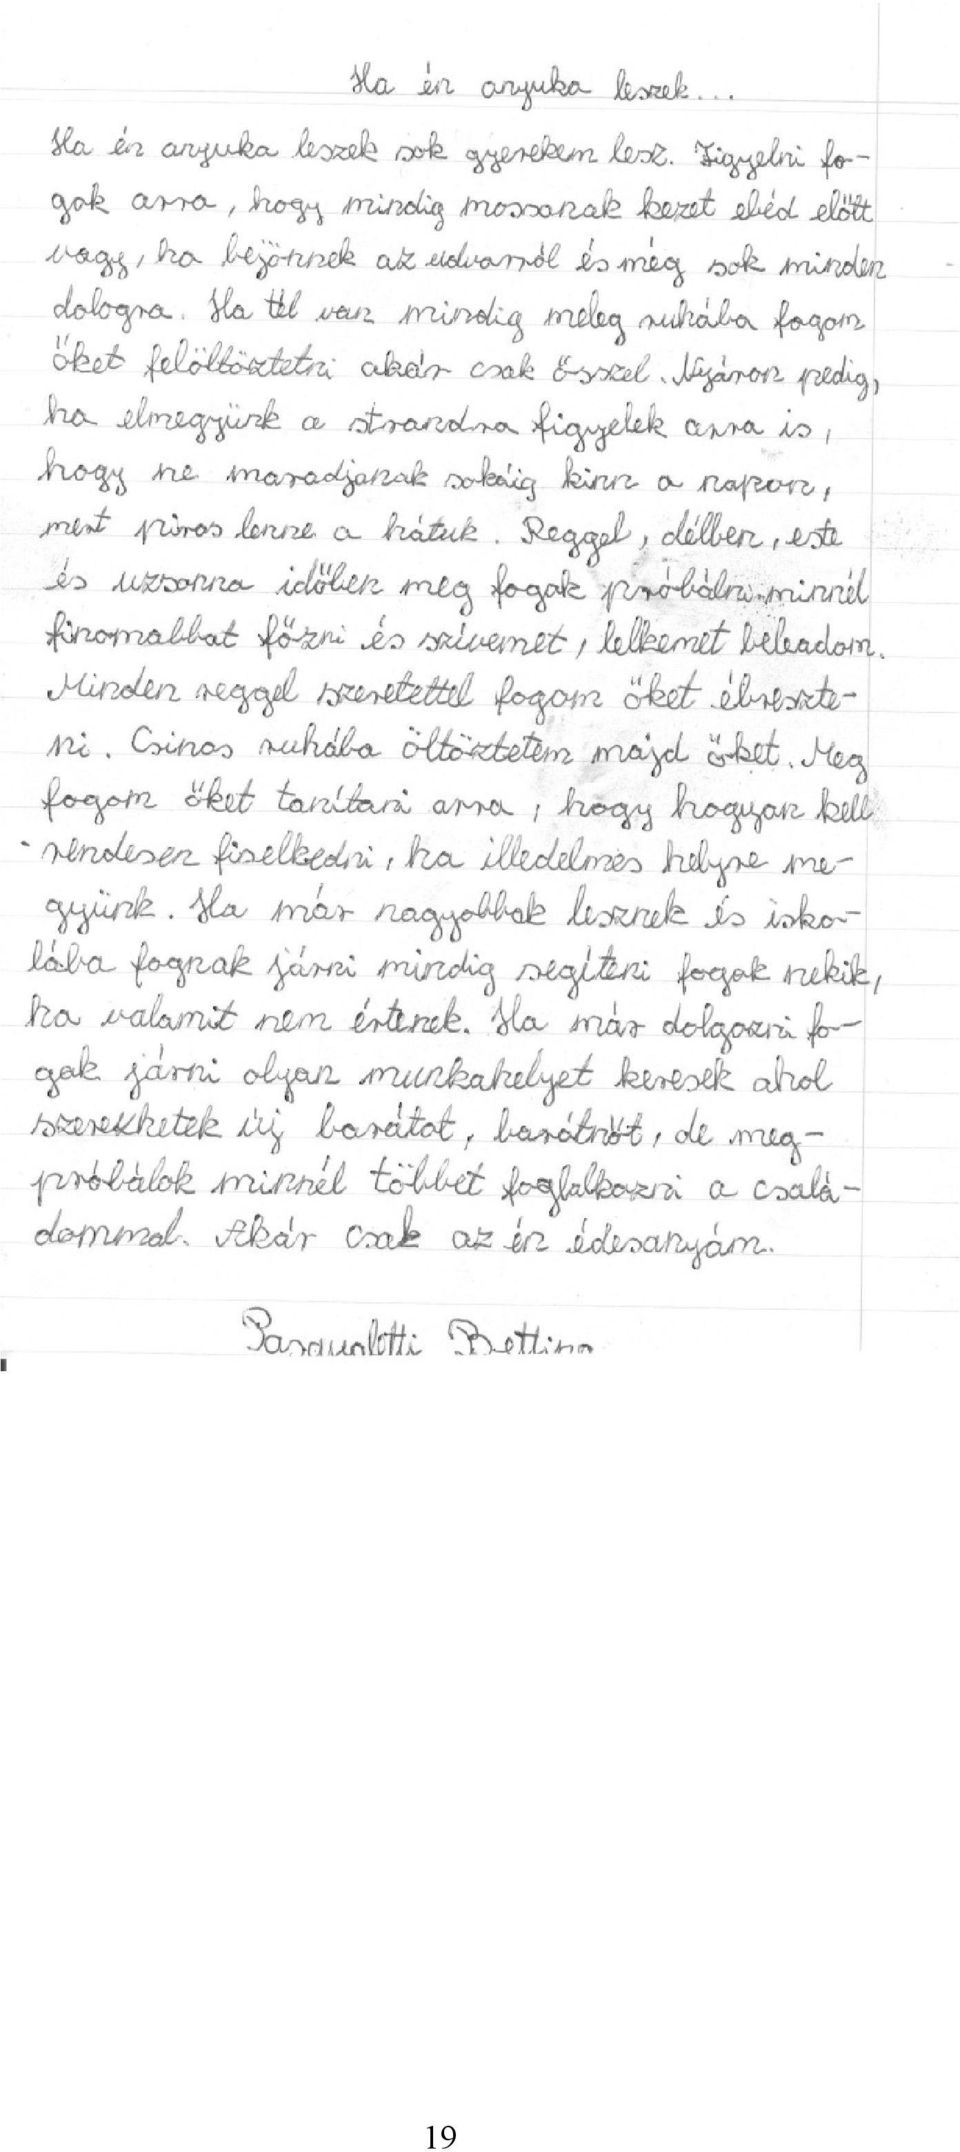 Ha én anyuka leszek...
Ha én anyuka leszek sok gyerekem lesz. Figyelni fo-
gok arra, hogy mindig mossanak kezet ebéd előtt
vagy, ha bejönnek az udvarról és még sok minden
dologra. Ha tél van mindig meleg ruhába fogom
őket felöltöztetni akár csak ősszel. Nyáron pedig,
ha elmegyünk a strandra figyelek arra is,
hogy ne maradjanak sokáig kinn a napon,
mert piros lenne a hátuk. Reggel, délben, este
és uzsonna időben meg fogok próbálni minnél
finomabbat főzni és szívemet, lelkemet beleadom.
Minden reggel szeretettel fogom őket ébreszte-
ni. Csinos ruhába öltöztetem majd őket. Meg
fogom őket tanítani arra, hogy hogyan kell
rendesen fiselkedni, ha illedelmes helyre me-
gyünk. Ha már nagyobbak lesznek és isko-
lába fognak járni mindig segíteni fogok nekik,
ha valamit nem értenek. Ha már dolgozni fo-
gok járni olyan munkahelyet keresek ahol
szerezhetek új barátot, barátnőt, de meg-
próbálok minnél többet foglalkozni a csalá-
dommal. Akár csak az én édesanyám.
Pasqualetti Bettina
19